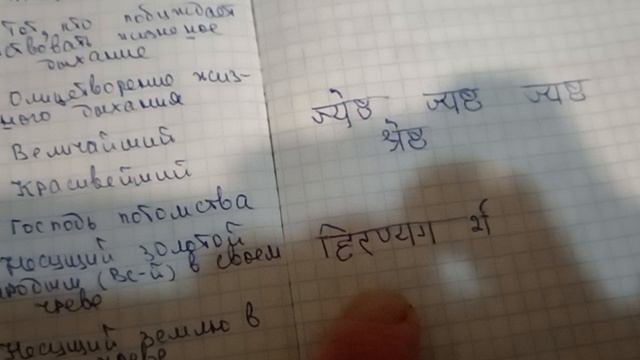 Тот, кто побуждает
ствовать жизненное
дыхание
Олицетворение жиз-
ного дыхания
Величайший
Красивейший
Господь потомства
Несущий золотой
(Вс-й) в своем
чреве
Несущий землю в
ज्येष्ठ ज्यष्ठ ज्यष्ठ
श्रेष्ठ
हिरण्यग र्भ